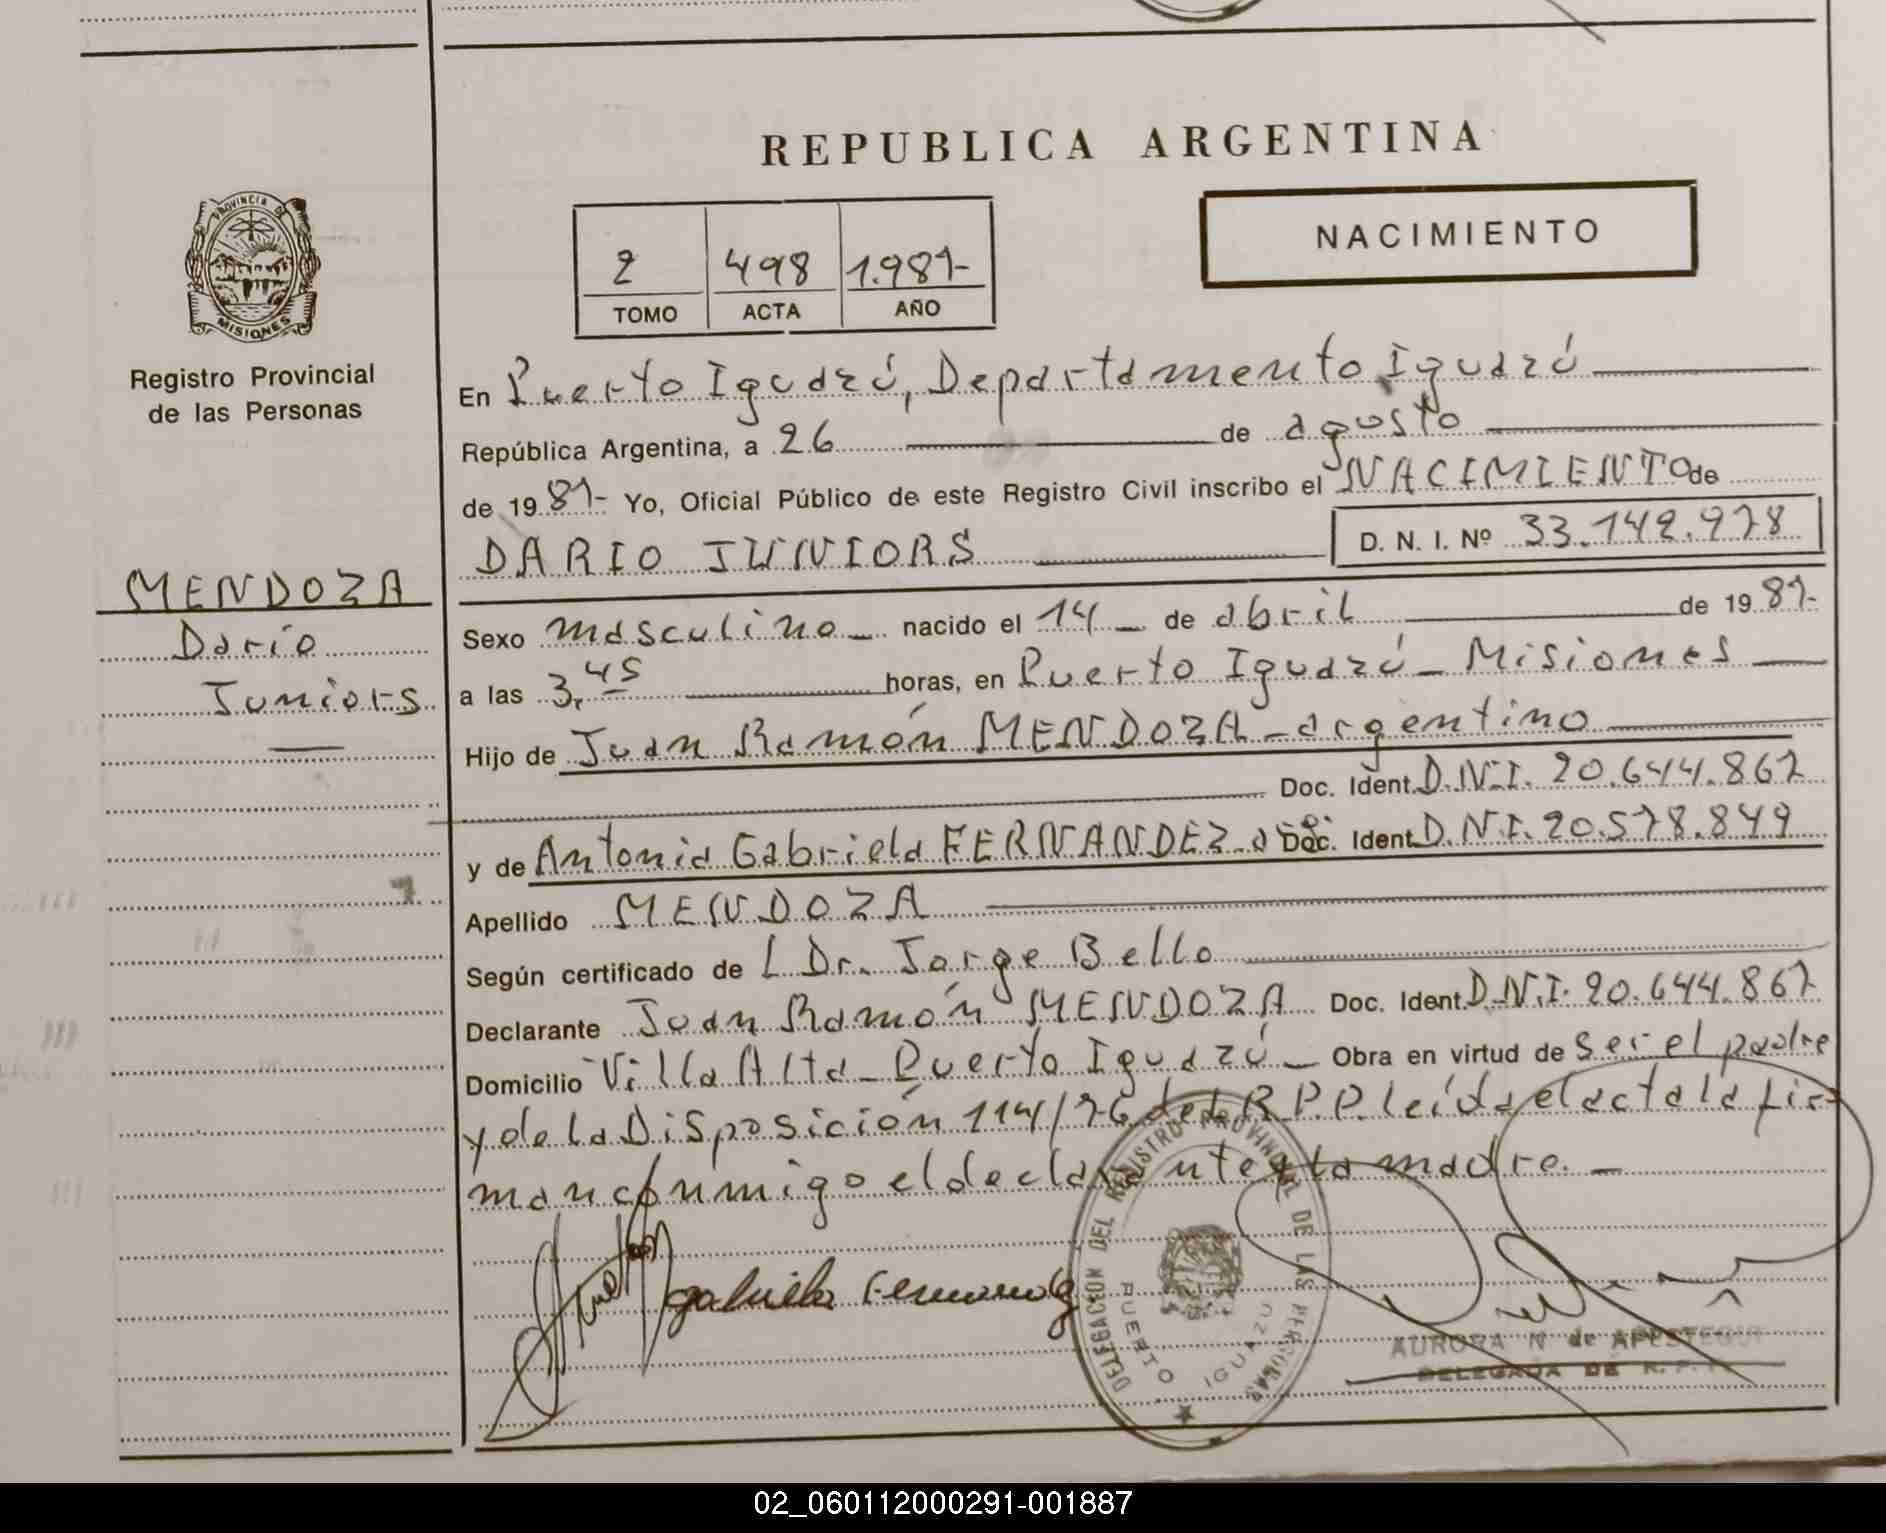 REPUBLICA ARGENTINA
PROVINCIA DE
MISIONES
Registro Provincial
de las Personas
MENDOZA
Darío
Juniors
NACIMIENTO
2 498 1.987-
TOMO ACTA AÑO
En Puerto Iguazú, Departamento Iguazú
República Argentina, a 26 de agosto
de 1987- Yo, Oficial Público de este Registro Civil inscribo el NACIMIENTO de
DARIO JUNIORS D. N. I. Nº 33.142.978
Sexo masculino nacido el 14 de abril de 1987-
a las 3,45 horas, en Puerto Iguazú - Misiones
Hijo de Juan Ramón MENDOZA - argentino
Doc. Ident. D.N.I. 20.644.867
y de Antonia Gabriela FERNANDEZ - Doc. Ident. D.N.I. 20.578.849
Apellido MENDOZA
Según certificado de l Dr. Jorge Bello
Declarante Juan Ramón MENDOZA Doc. Ident. D.N.I. 20.644.867
Domicilio Villa Alta - Puerto Iguazú - Obra en virtud de ser el padre
y de la Disposición 114/76 del R.P.P. leída el acta la fir-
man conmigo el declarante y la madre. -
gabriela Fernandez
DELEGACION DEL REGISTRO PROVINCIAL DE LAS PERSONAS
PUERTO IGUAZU
AURORA N de APESTEGUI
DELEGADA DE R. P. P.
02_060112000291-001887